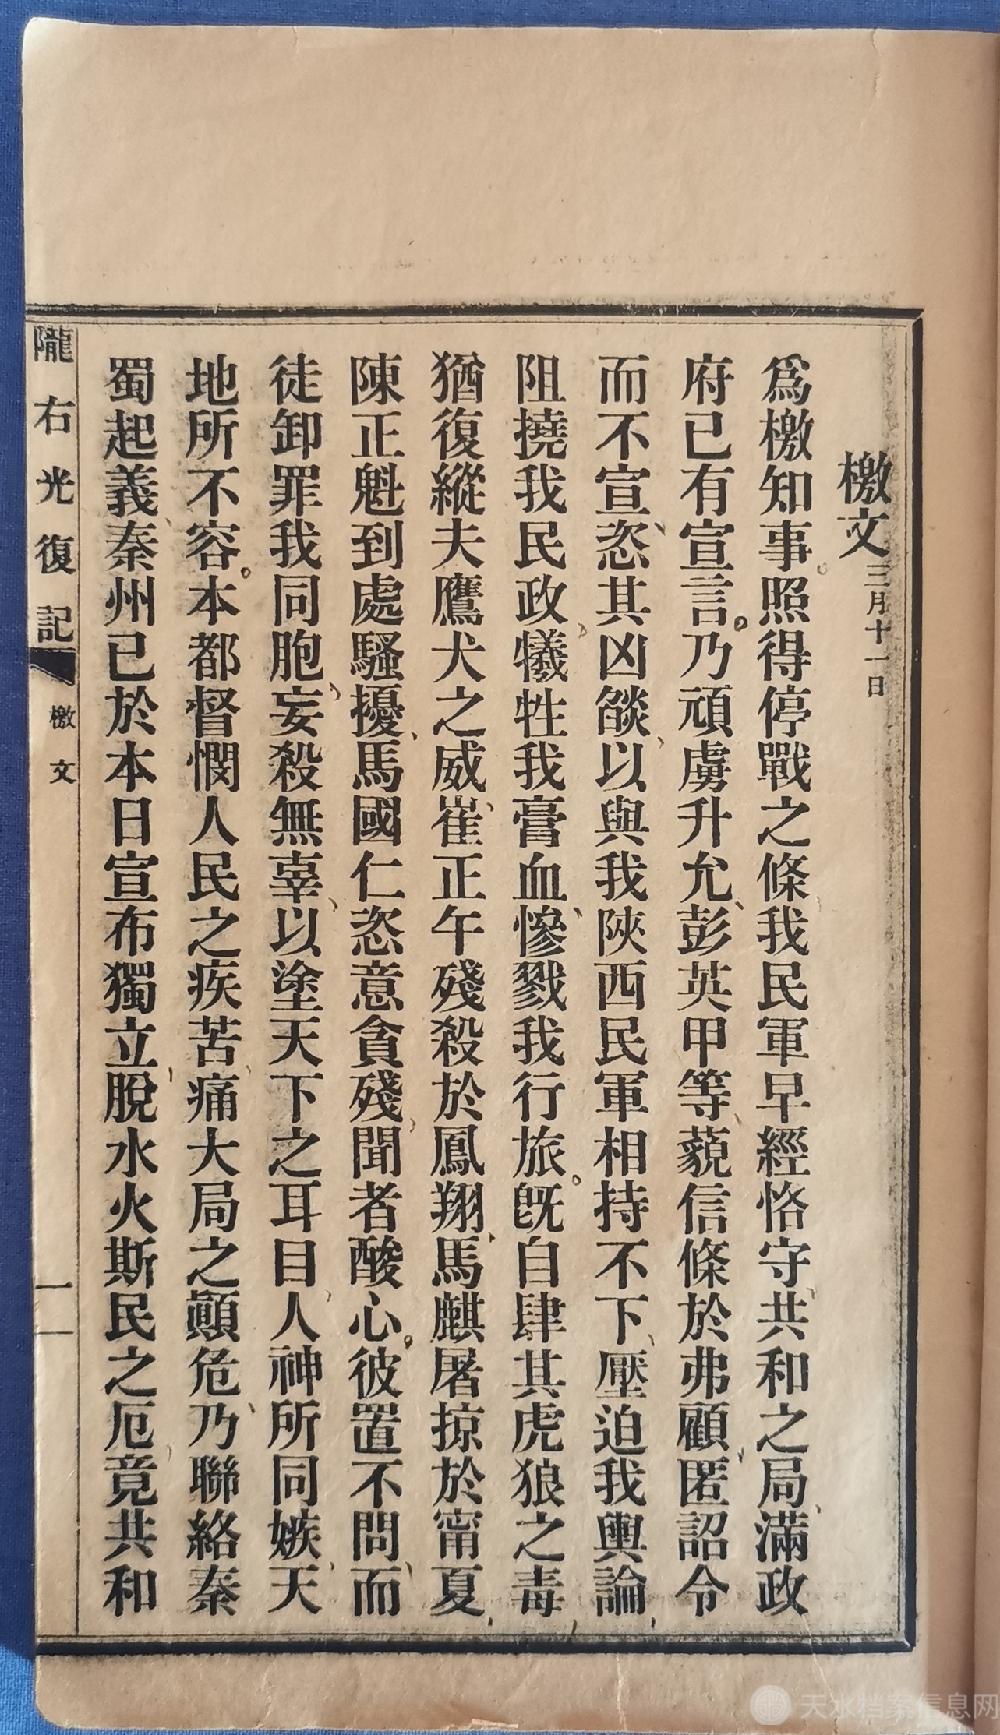 檄文三月十一日
爲檄知事。照得停戰之條我民軍早經恪守共和之局、滿政
府已有宣言。乃頑虜升允、彭英甲等藐信條於弗顧、匿詔令
而不宣、恣其凶燄、以與我陝西民軍相持不下、壓迫我輿論、
阻撓我民政、犧牲我膏血、慘戮我行旅。旣自肆其虎狼之毒、
猶復縱夫鷹犬之威、崔正午殘殺於鳳翔、馬麒屠掠於甯夏、
陳正魁到處騷擾、馬國仁恣意貪殘、聞者酸心。彼置不問、而
徒卸罪我同胞、妄殺無辜、以塗天下之耳目、人神所同嫉、天
地所不容。本都督憫人民之疾苦、痛大局之顚危、乃聯絡秦
蜀起義秦州已於本日宣布獨立、脫水火斯民之厄、竟共和
隴右光復記
檄文
一
天水档案信息网